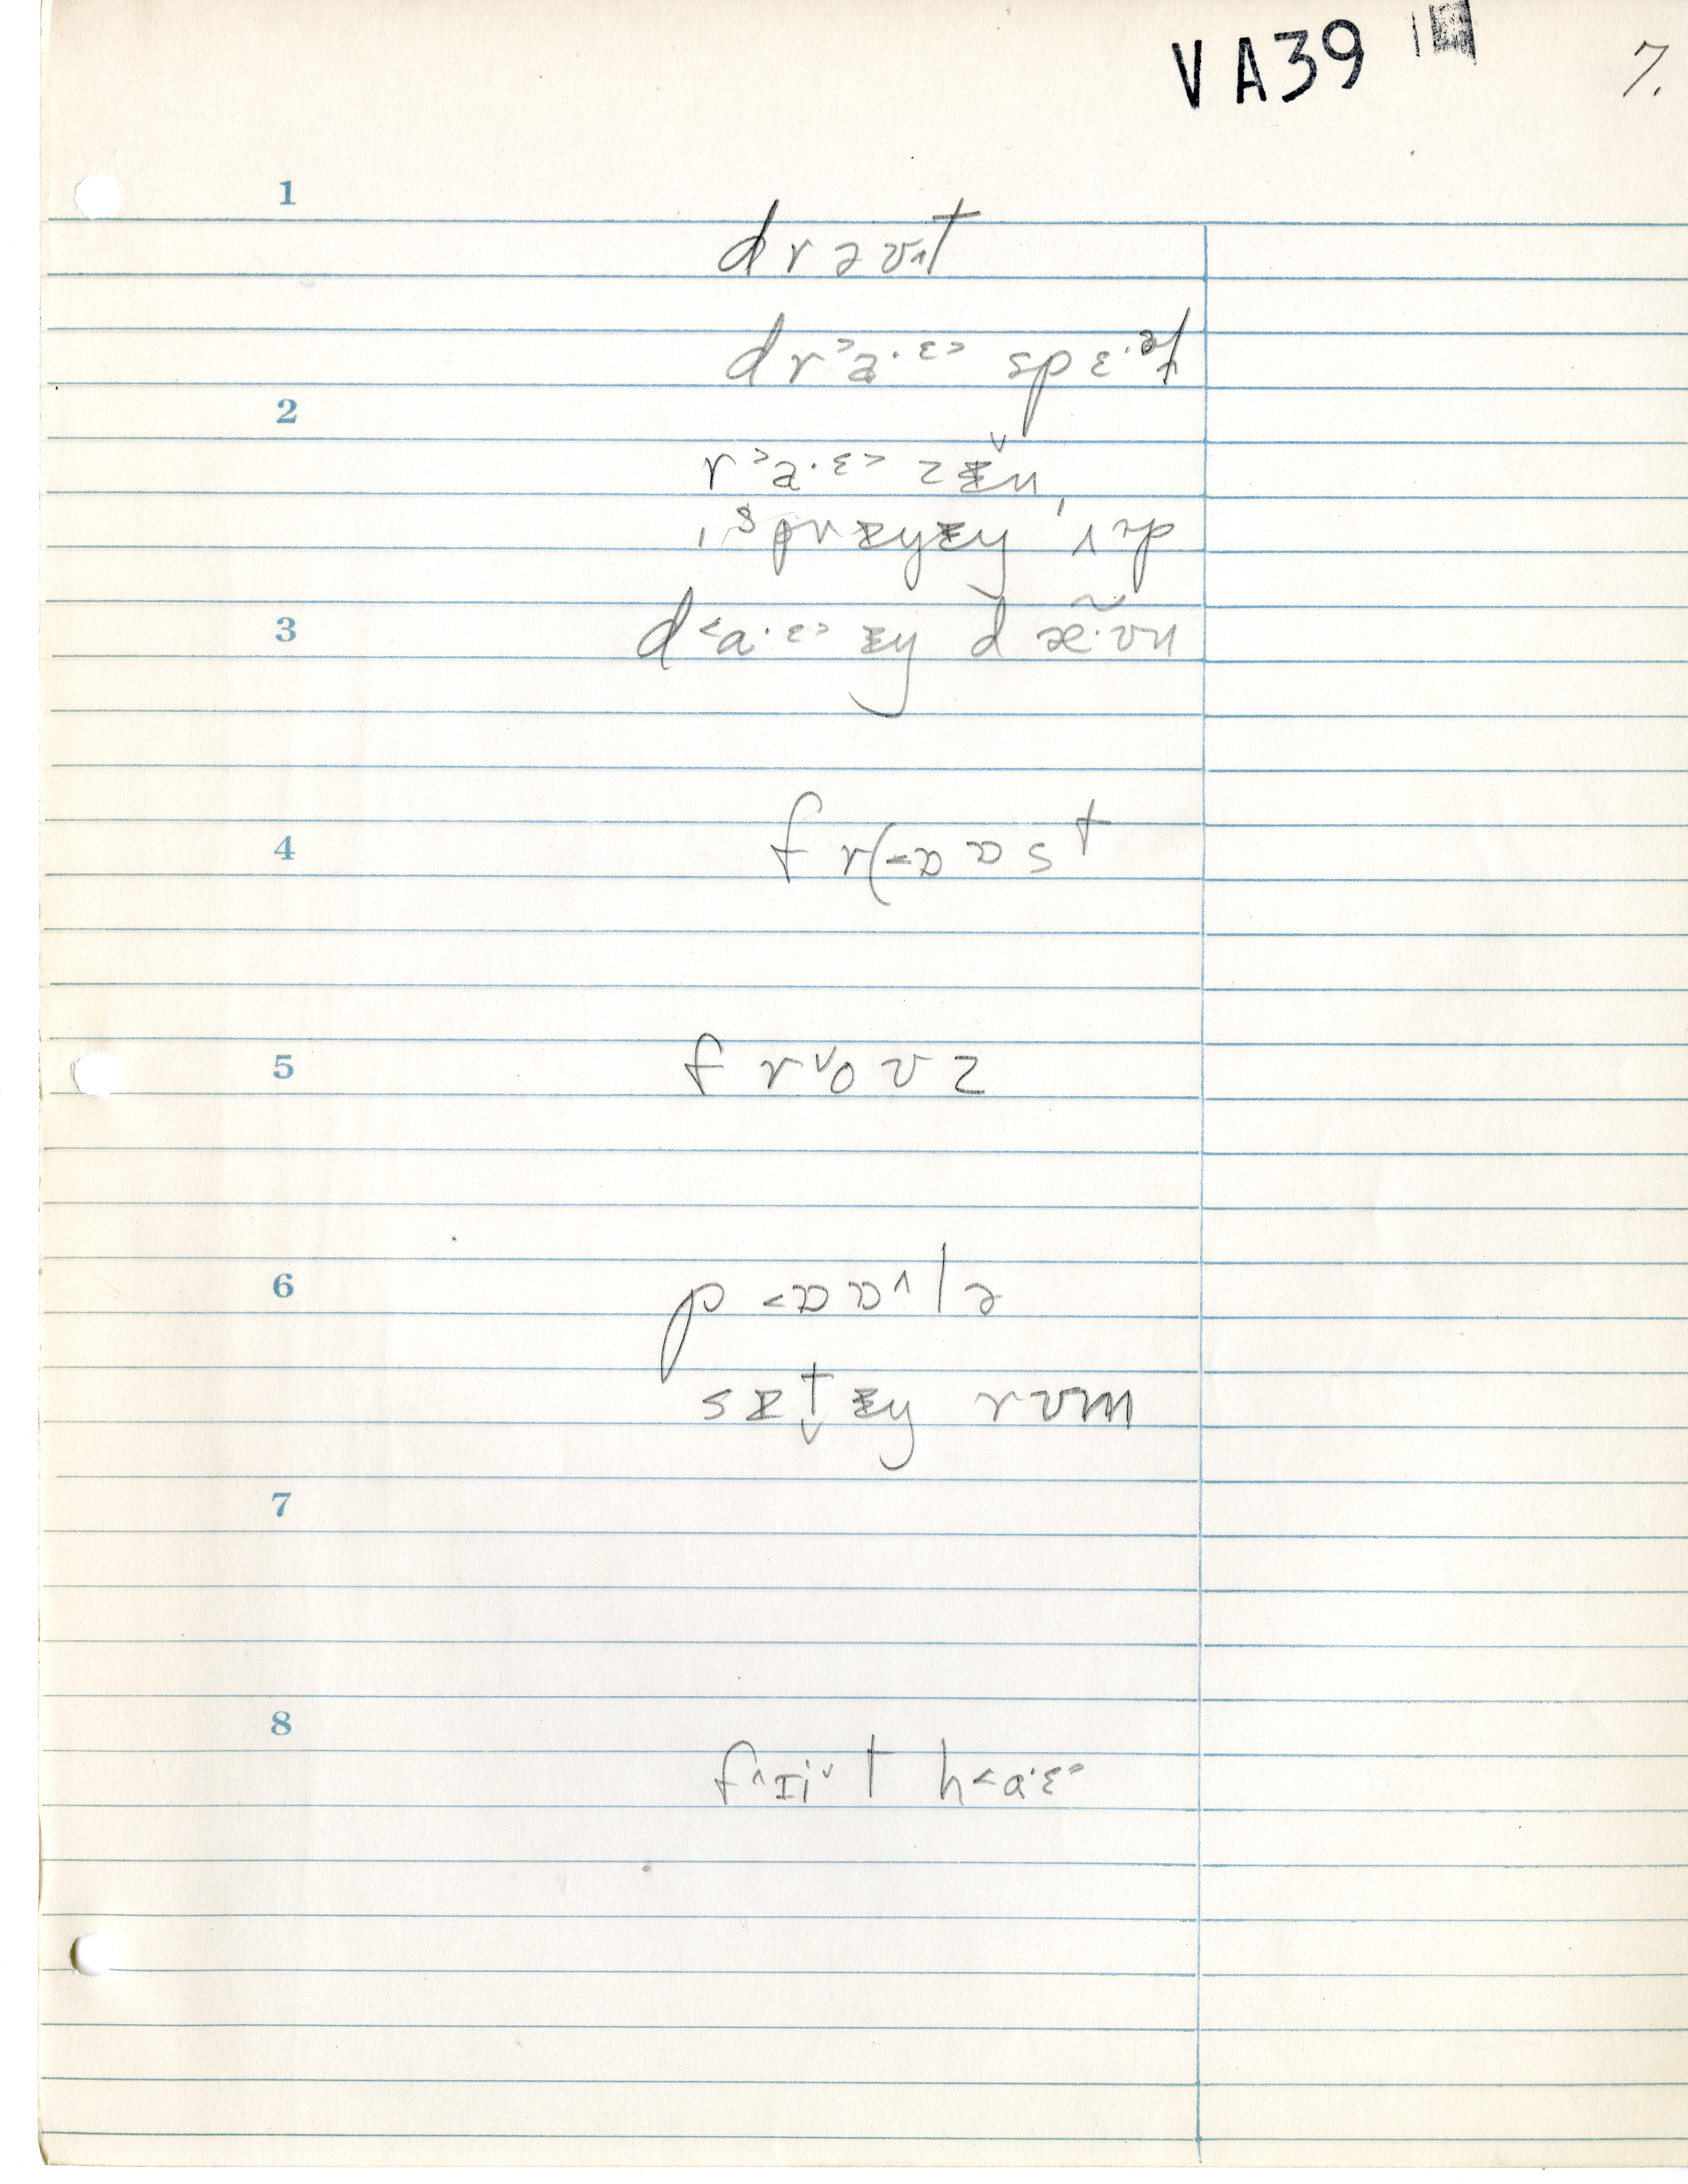 VA39
7.
1
drəʊ˄t
dr˃a·ɛ˃ spɛ·əɫ
2
r˃a·ɛ˃ zɨ̌n,
ˌsprɨŋɨŋ ˈʌɜp
3
d˂a·ɛ˃ ɨŋ d æ̃·ʊn
4
f r(˂ɒ ɒ s t
5
f r˅o ʊ z
6
p ˂ɒ ɒ˄ l ə
s ɨ t̬ ɨŋ rʊm
7
8
f˄ɪi˅ t h˂a·ɛ˃